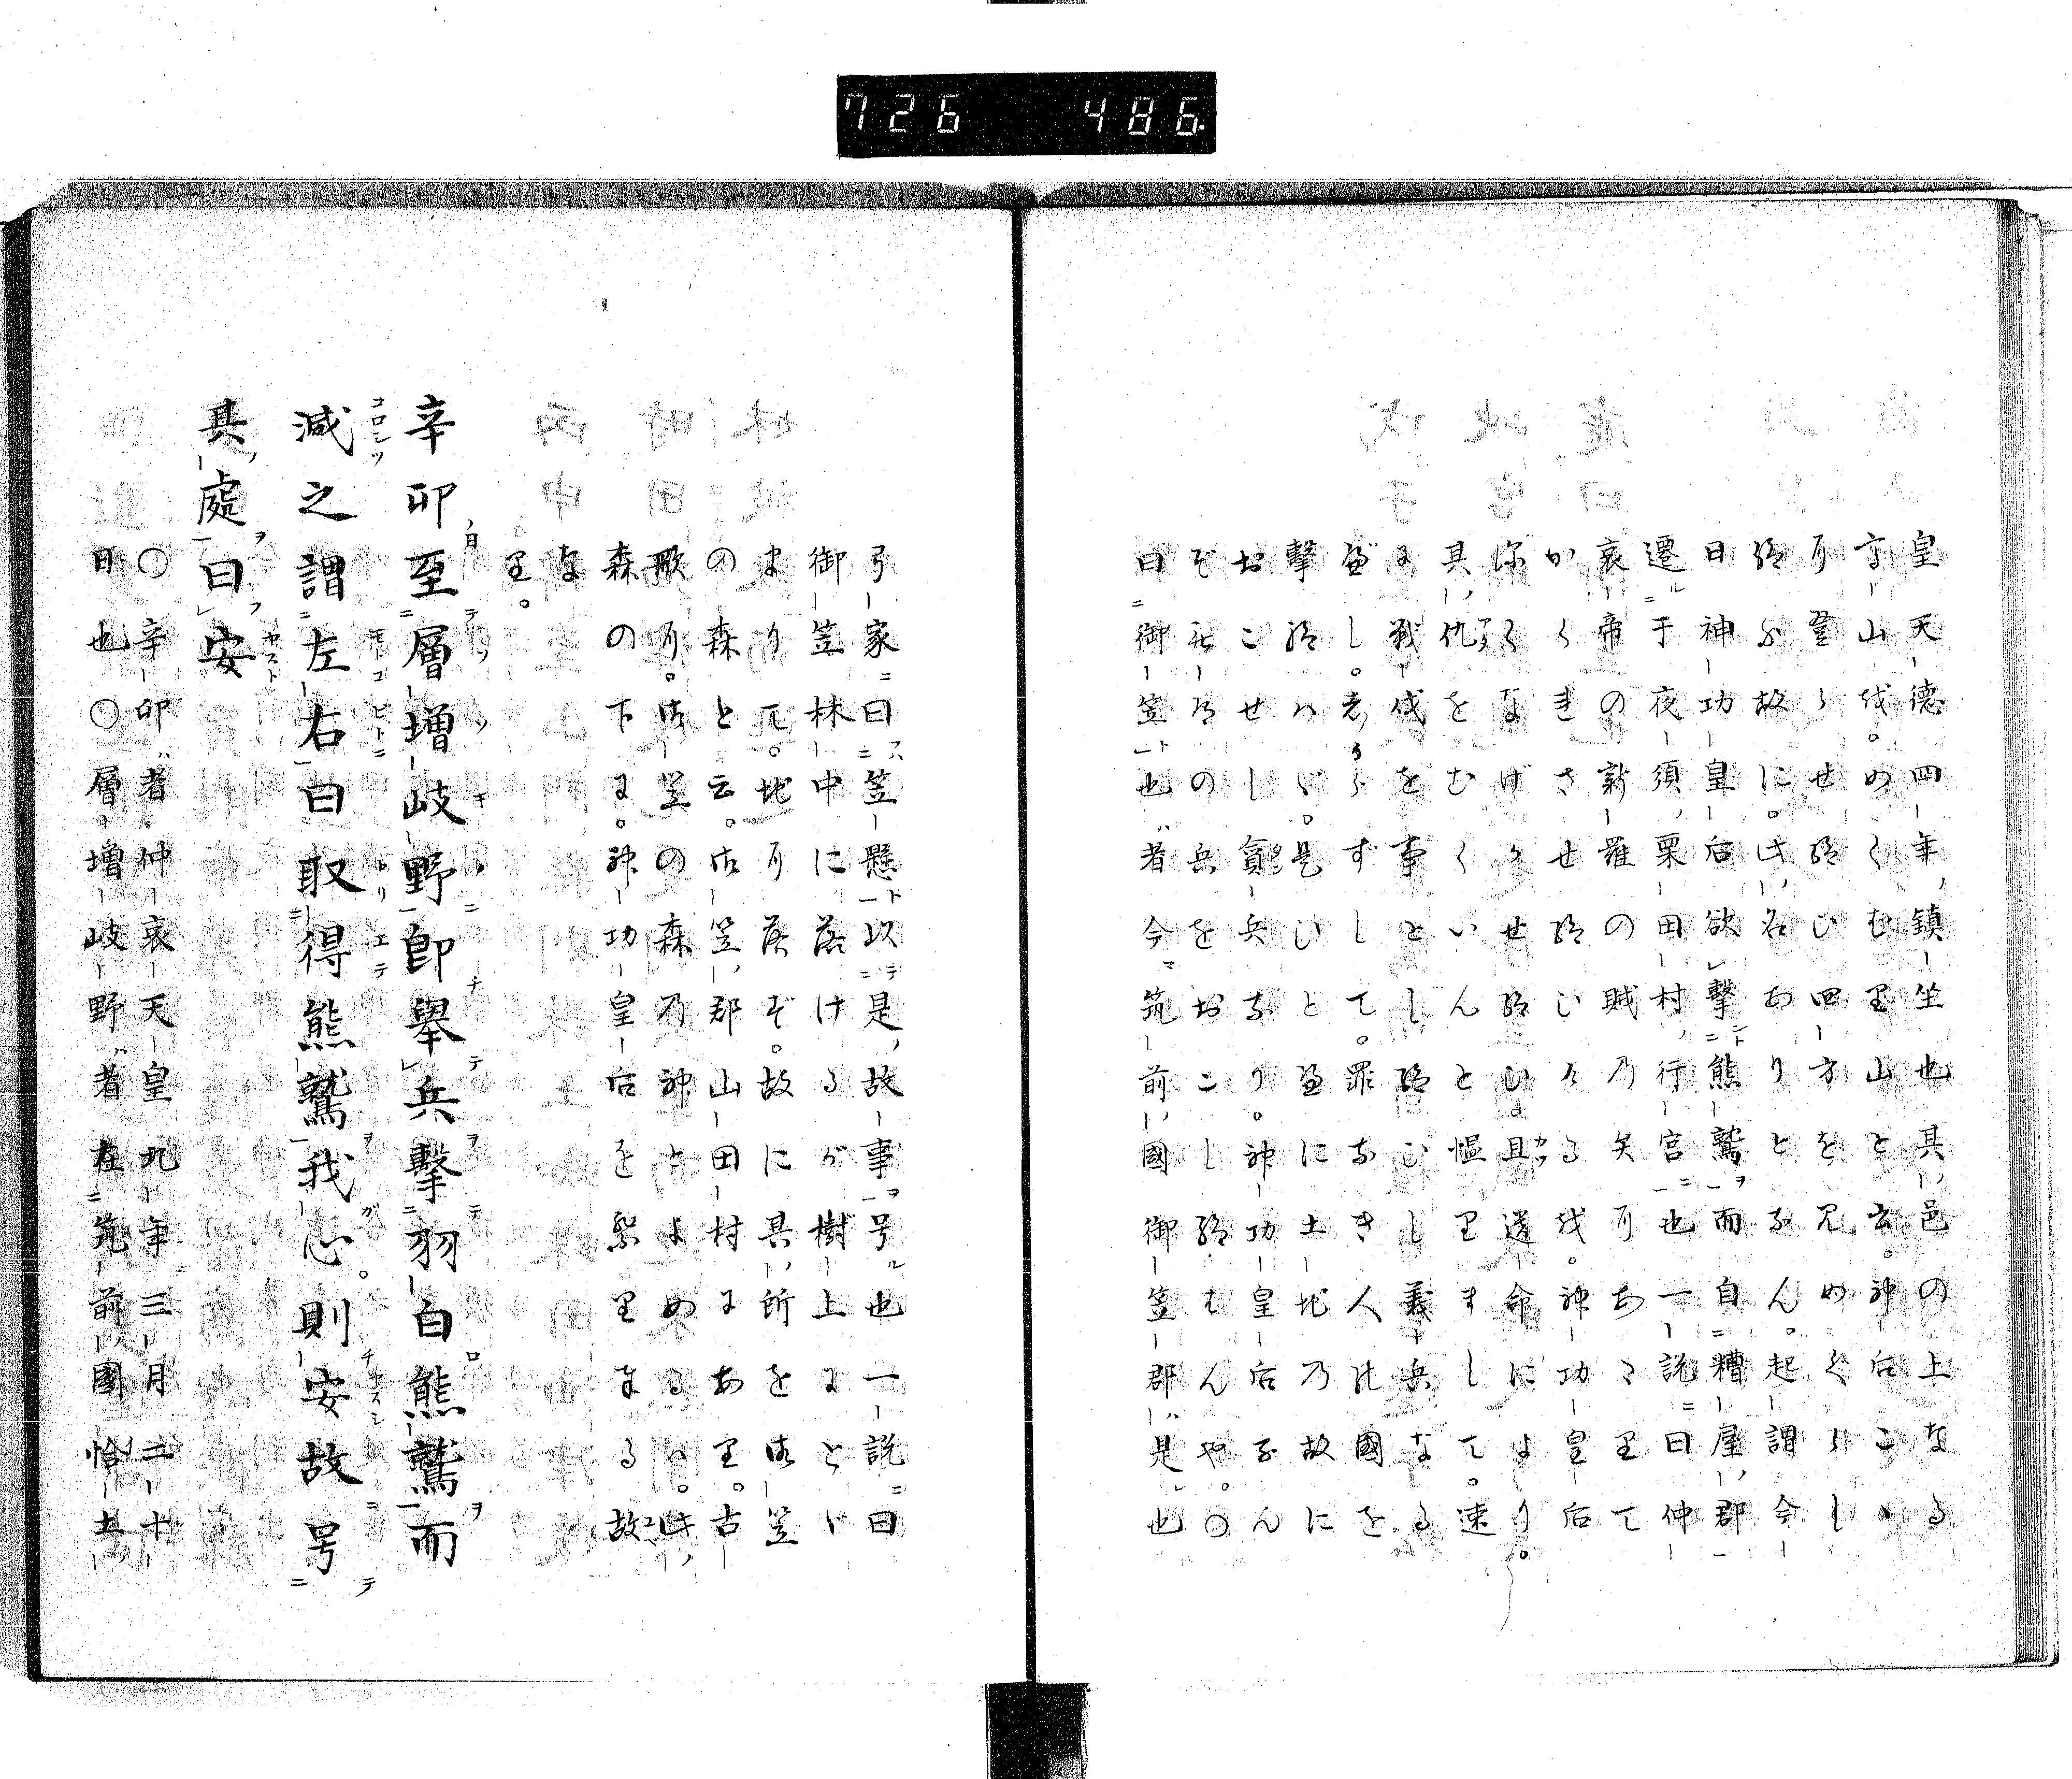 726 486.
皇天德四年鎮坐也其邑の上なる
山越。めくむ里山と云。神后こゝ
登らせ給ひ四方を見めぐらし
給ふ故に。此名ありとなん。起謂今
日神功皇后欲擊熊鷲而自糟屋郡
遷于夜須栗田村行宮也一說曰仲
哀帝の新羅の賊乃矢にあゝ里て
かくきさせ給ひける越。神功皇后
深くなげかせ給ひ。且遺命により。
其仇をむくいんと慍里まして。速
に戰伐を事とし給ひし義兵なる
べし。あらずして。罪なき人の國を
擊給はゞ。是ひとへに土地乃故に
おこせし貪兵なり。神功皇后なん
ぞ此の兵をおこし給はんや。〇
曰御笠也者今筑前國御笠郡是也
号家曰笠懸以是故事号也一說曰
御笠林中に落けるが樹上にとゞ
まりて。地に落ず。故に其所を御笠
の森と云。御笠郡山田村にあ里。古
歌に。御笠の森乃神とよめるは。此
森の下に。神功皇后を祭里まる故
な
里。
辛卯至層增岐野卽擧兵擊羽白熊鷲而
滅之謂左右曰取得熊鷲我心則安故号
其處曰安
〇辛卯者。仲哀天皇九年三月二十
日也〇層增岐野者在筑前國怡土